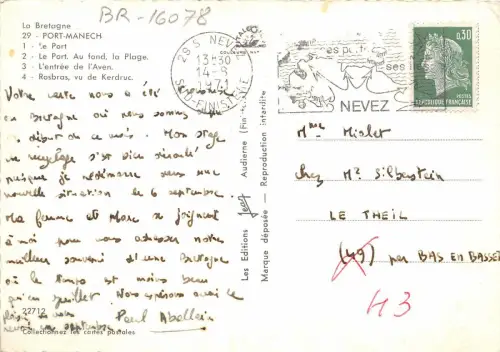 BR-16078
La Bretagne
29 - PORT-MANECH
1 - Le Port
2 - Le Port. Au fond, la Plage.
3 - L'entrée de l'Aven.
4 - Rosbras, vu de Kerdruc.
Votre carte nous a été
en Bretagne où nous sommes
début de ce mois. Mon stage
de recyclage s'est bien déroulé
puisque je redémarre dans une
nouvelle situation le 6 septembre.
Ma femme et Marc se joignent
à moi pour vous adresser notre
meilleur souvenir d'une Bretagne
où le temps est moins beau
qu'en juillet. Nous espérons avoir le
plaisir de vous
en septembre
Paul
22712
Collectionnez les cartes postales
Les Editions Jean Audierne (Fin.)
Marque déposée - Reproduction interdite
29 S NEVEZ
13H30
14-8
SUD-FINISTERE
ses
NEVEZ
0,30
POSTES
REPUBLIQUE FRANÇAISE
Mme Mialet
chez Mr Silbestein
LE THEIL
(49) par BAS EN BASSET
H3